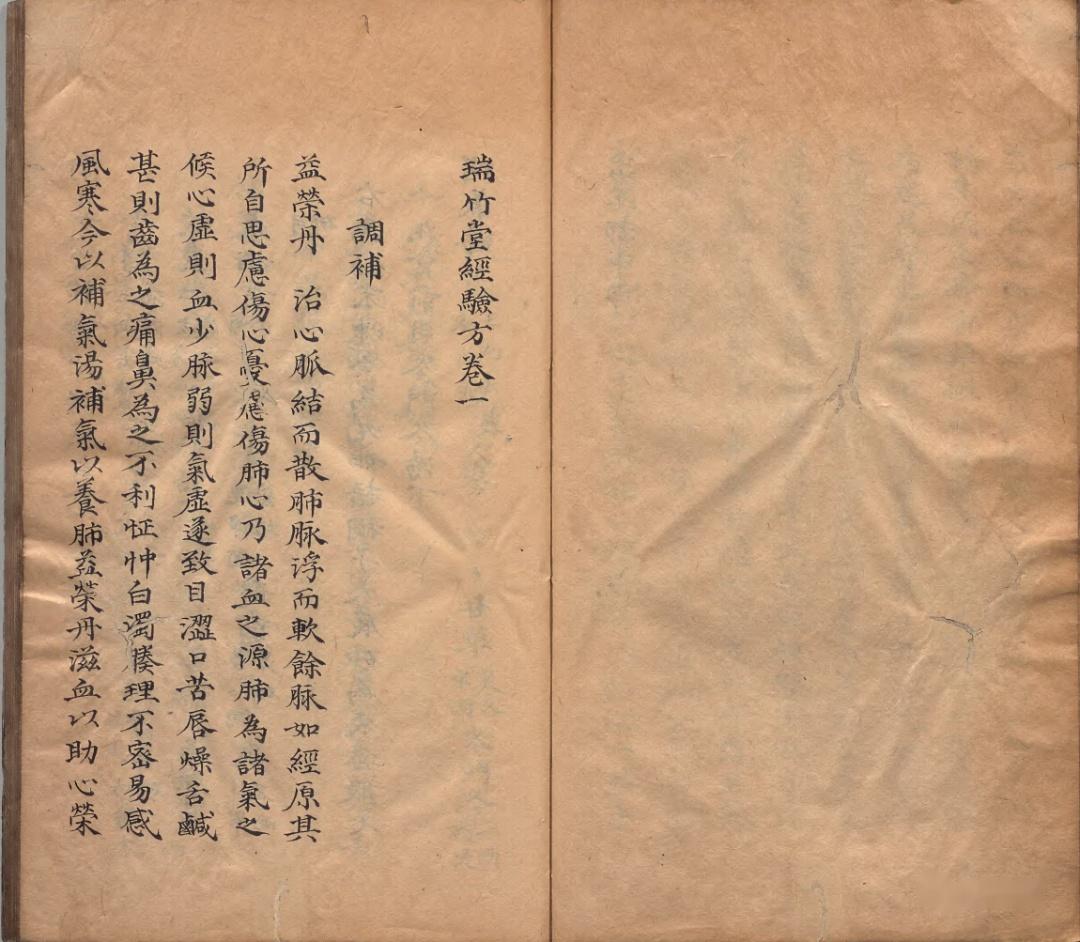 瑞竹堂經驗方卷一
調補
益榮丹　治心脈結而散肺脉浮而軟餘脉如經原其
所自思慮傷心憂慮傷肺心乃諸血之源肺為諸氣之
候心虛則血少脉弱則氣虛遂致目澀口苦唇燥舌鹹
甚則齒為之痛鼻為之不利怔忡白濁腠理不密易感
風寒今以補氣湯補氣以養肺益榮丹滋血以助心榮